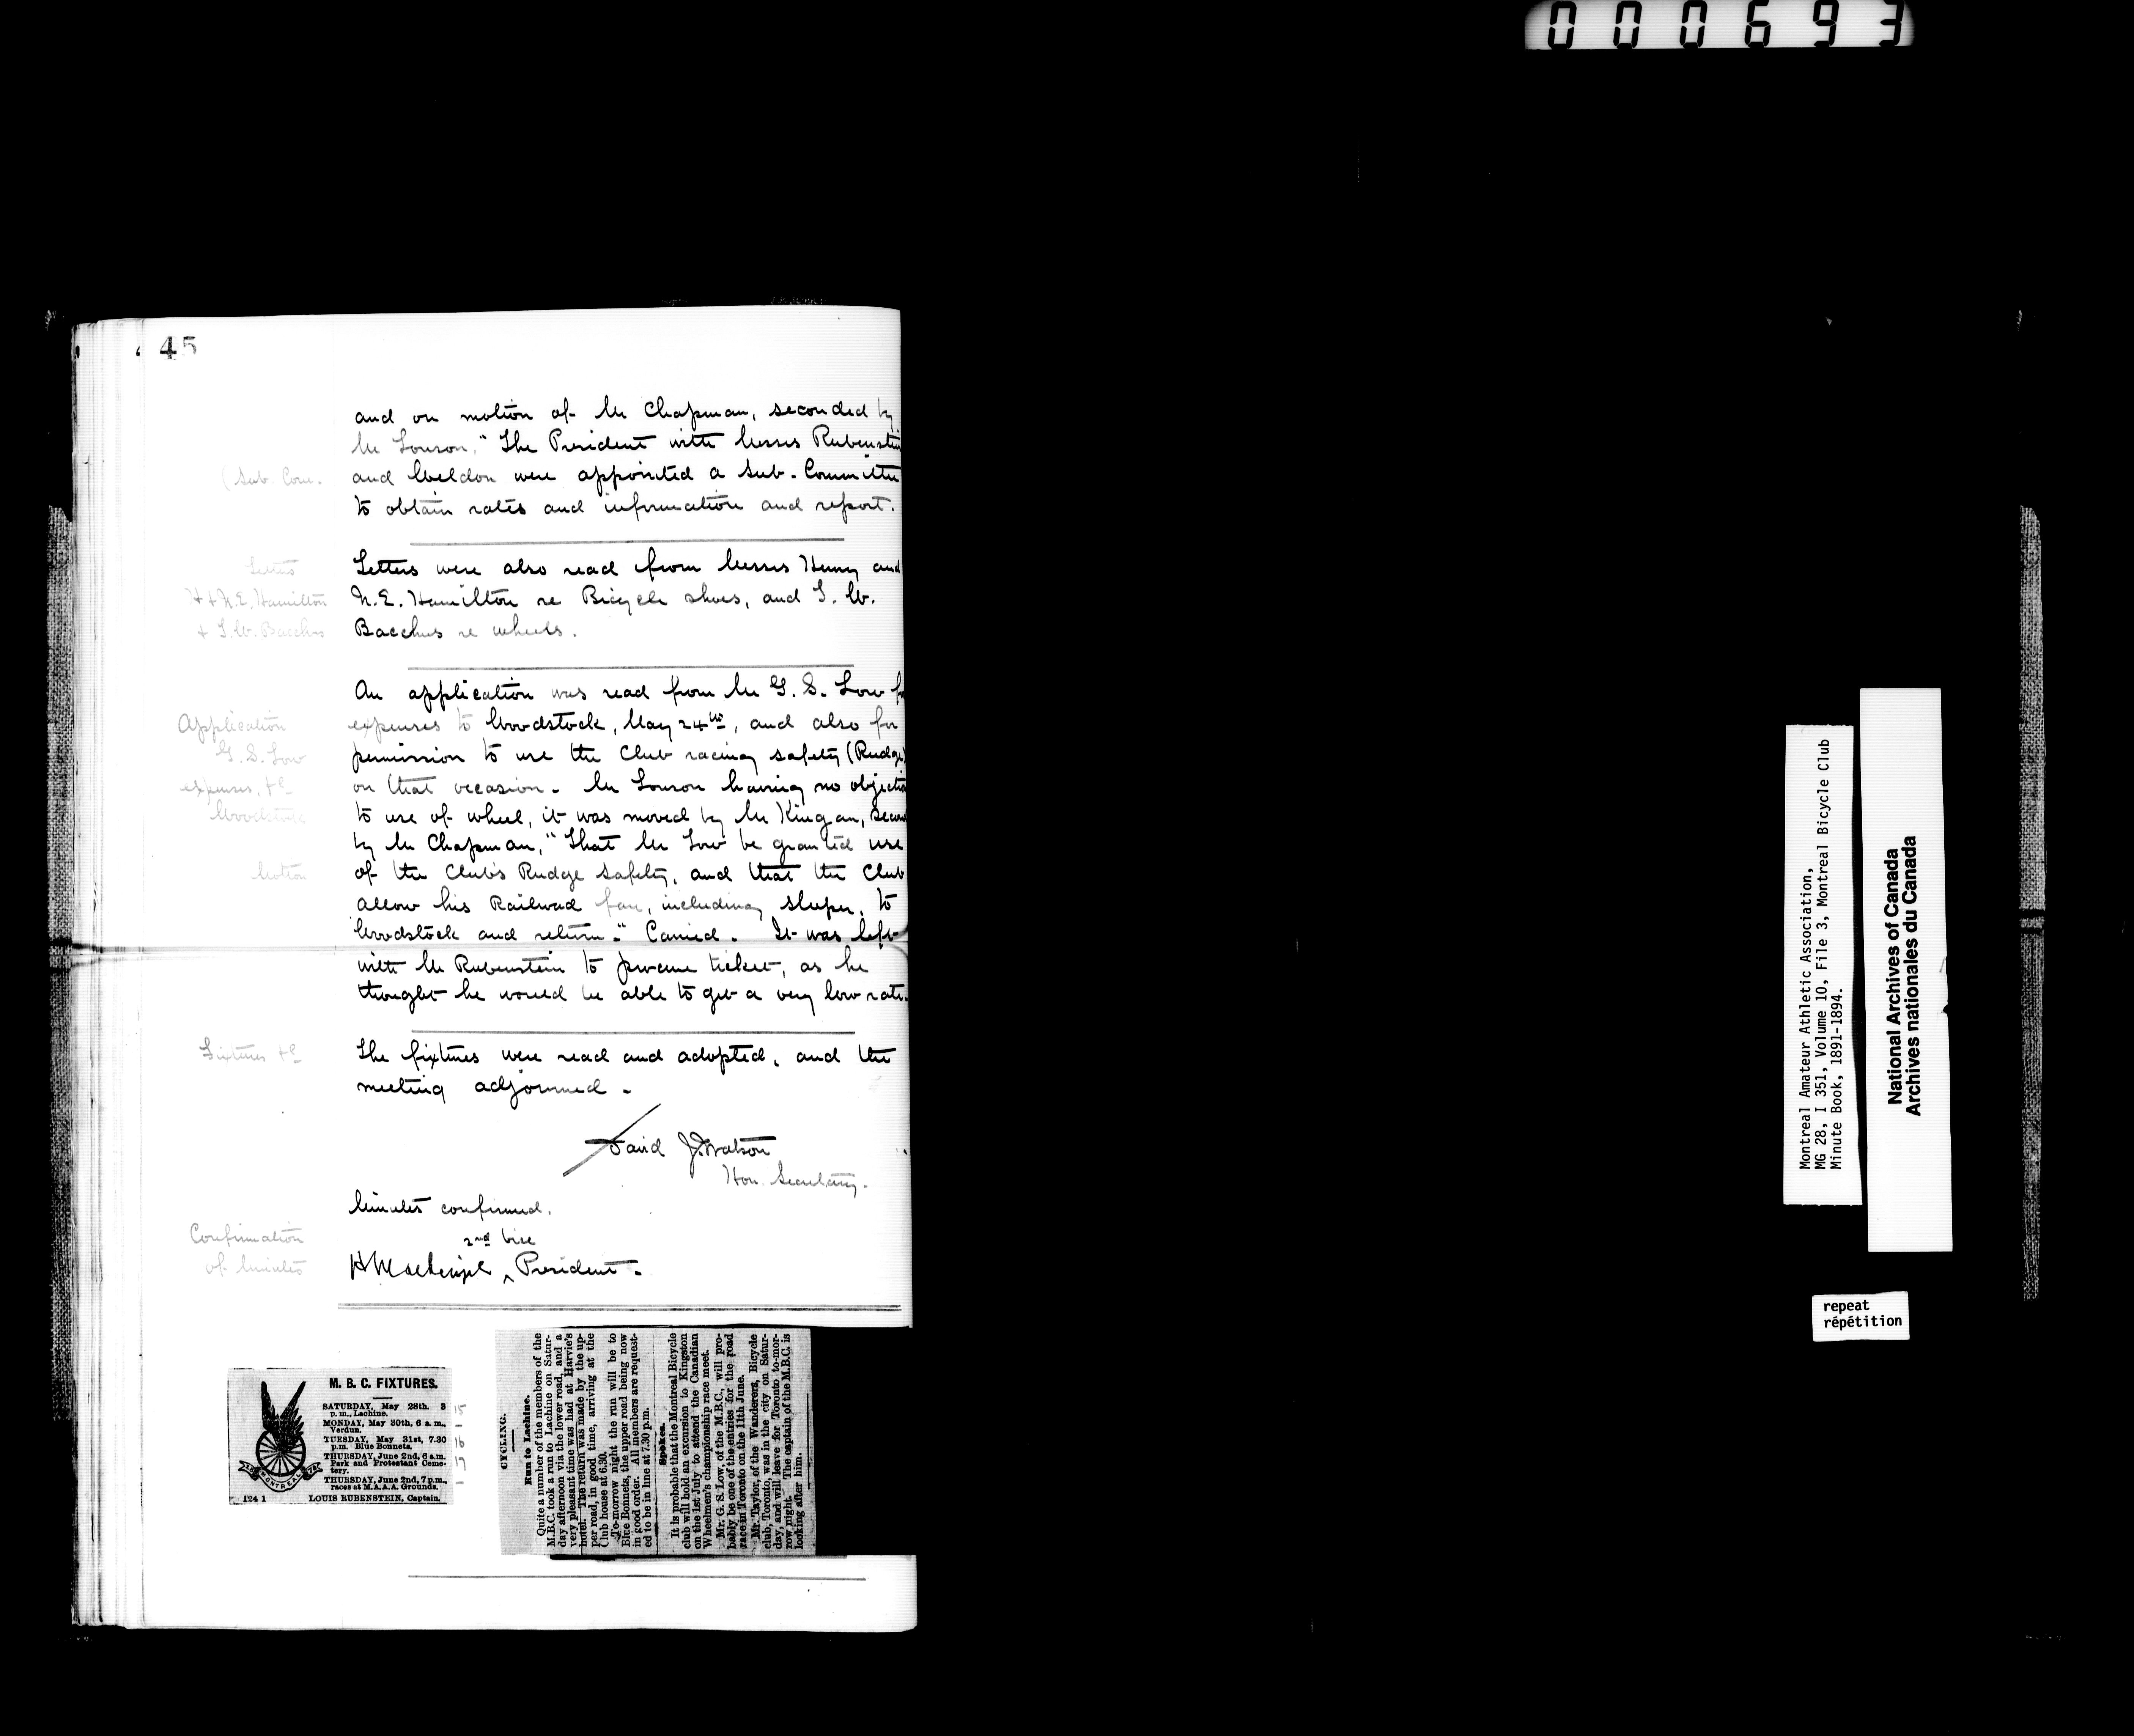 000693
45
and on motion of Mr Chapman, seconded by
Mr Louson, "The President with Messrs Rubenstein
(Sub. Com.
and Weldon were appointed a Sub-Committee
to obtain rates and information and report.
Letters
H & N.E. Hamilton
& T.W. Bacchus
Letters were also read from Messrs Henry and
N.E. Hamilton re Bicycle shoes, and T.W.
Bacchus re wheels.
Application
G.S. Low
expenses, &c
Woodstock
An application was read from Mr G.S. Low for
expenses to Woodstock, May 24th, and also for
permission to use the Club racing safety (Rudge)
on that occasion. Mr Louson having no objection
to use of wheel, it was moved by Mr Kingan, second
by Mr Chapman, "That Mr Low be granted use
Motion
of the Club's Rudge safety, and that the Club
allow his Railroad fare, including sleeper, to
Woodstock and return." Carried. It was left
with Mr Rubenstein to procure ticket, as he
thought he would be able to get a very low rate.
Fixtures &c
The fixtures were read and adopted, and the
meeting adjourned.
David J. Watson
Hon. Secretary.
Minutes confirmed.
Confirmation
of Minutes
2nd Vice
^ President.
M. B. C. FIXTURES.
SATURDAY, May 28th. 3
p.m., Lachine.
MONDAY, May 30th, 6 a.m.,
Verdun.
TUESDAY, May 31st, 7.30
p.m. Blue Bonnets.
THURSDAY, June 2nd, 6 a.m.
Park and Protestant Ceme-
tery.
THURSDAY, June 2nd, 7 p.m.,
races at M.A.A.A. Grounds.
124 1 LOUIS RUBENSTEIN, Captain.
MONTREAL
CYCLING.
Run to Lachine.
Quite a number of the members of the
M.B.C. took a run to Lachine on Satur-
day afternoon via the lower road, and a
very pleasant time was had at Harvie's
hotel. The return was made by the up-
per road, in good time, arriving at the
Club house at 6.30.
To-morrow night the run will be to
Blue Bonnets, the upper road being now
in good order. All members are request-
ed to be in line at 7.30 p.m.
Spokes.
It is probable that the Montreal Bicycle
club will hold an excursion to Kingston
on the 1st July to attend the Canadian
Wheelmen's championship race meet.
Mr. G. S. Low, of the M.B.C., will pro-
bably be one of the entries for the road
race in Toronto on the 11th June.
Mr. Taylor, of the Wanderers, Bicycle
club, Toronto, was in the city on Satur-
day, and will leave for Toronto to-mor-
row night. The captain of the M.B.C. is
looking after him.
Montreal Amateur Athletic Association,
MG 28, I 351, Volume 10, File 3, Montreal Bicycle Club
Minute Book, 1891-1894.
National Archives of Canada
Archives nationales du Canada
repeat
répétition